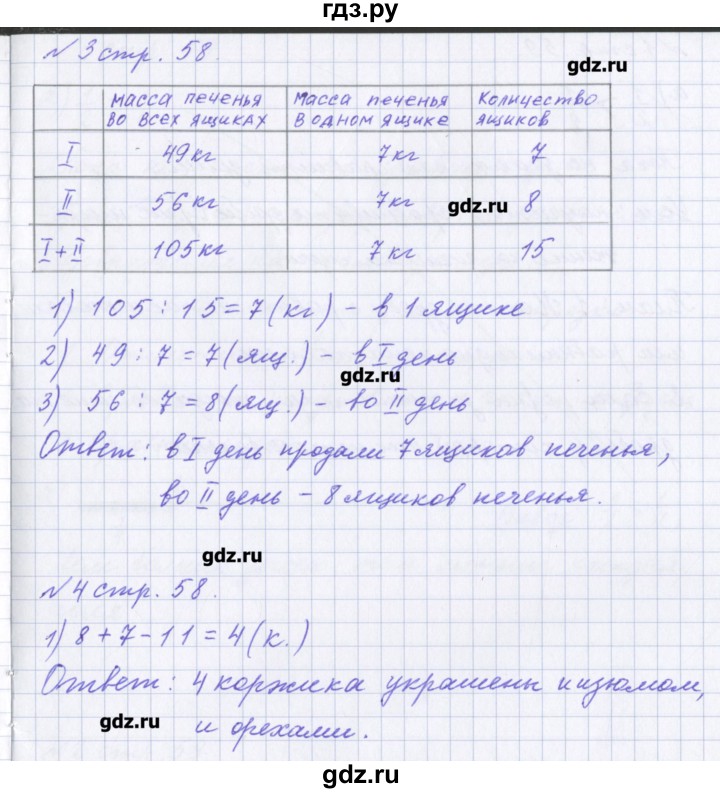 гдз.ру
№3 стр. 58.
gdz.ru
масса печенья во всех ящиках
Масса печенья в одном ящике
Количество ящиков
I 49кг 7кг 7
II 56кг 7кг 8
gdz.ru
I+II 105кг 7кг 15
1) 105 : 15 = 7 (кг) - в 1 ящике
2) 49 : 7 = 7 (ящ.) - в I день
gdz.ru
3) 56 : 7 = 8 (ящ.) - во II день
Ответ: в I день продали 7 ящиков печенья,
во II день - 8 ящиков печенья.
gdz.ru
№4 стр. 58.
1) 8 + 7 - 11 = 4 (к.)
Ответ: 4 коржика украшены и изюмом,
и орехами.
gdz.ru
gdz.ru